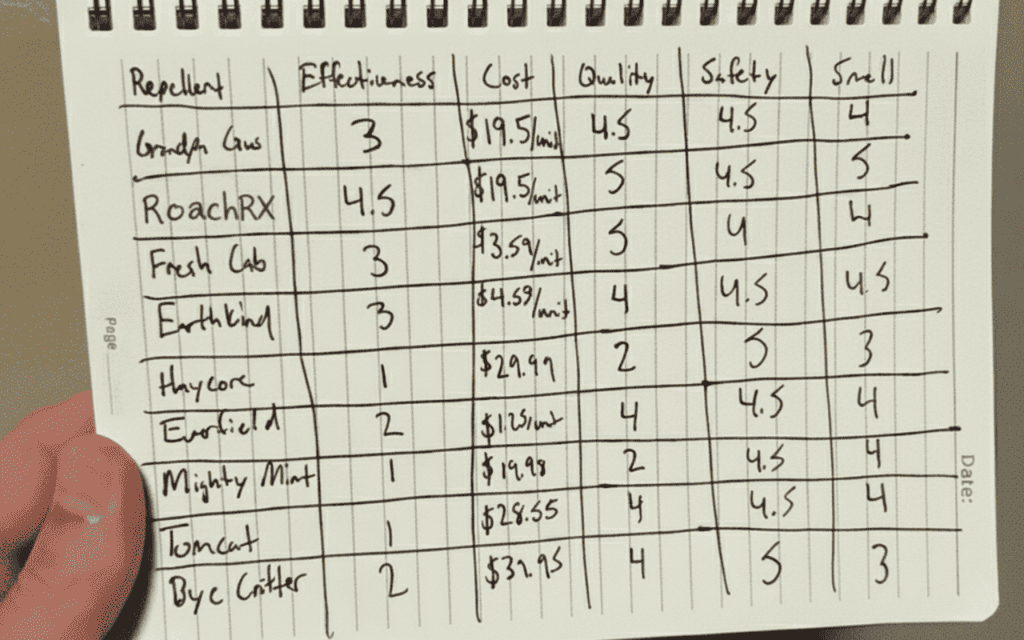 Repellent Effectiveness Cost Quality Safety Smell
Grandpa Gus 3 $19.5/unit 4.5 4.5 4
RoachRX 4.5 $19.5/unit 5 4.5 5
Fresh Cab 3 $3.59/unit 5 4 4
Earthkind 3 $4.59/unit 4 4.5 4.5
Haycore 1 $29.99 2 5 3
Everfield 2 $1.25/unit 4 4.5 4
Mighty Mint 1 $19.98 2 4.5 4
Tomcat 1 $28.55 4 4.5 4
Bye Critter 2 4 5 3
Page
Date: